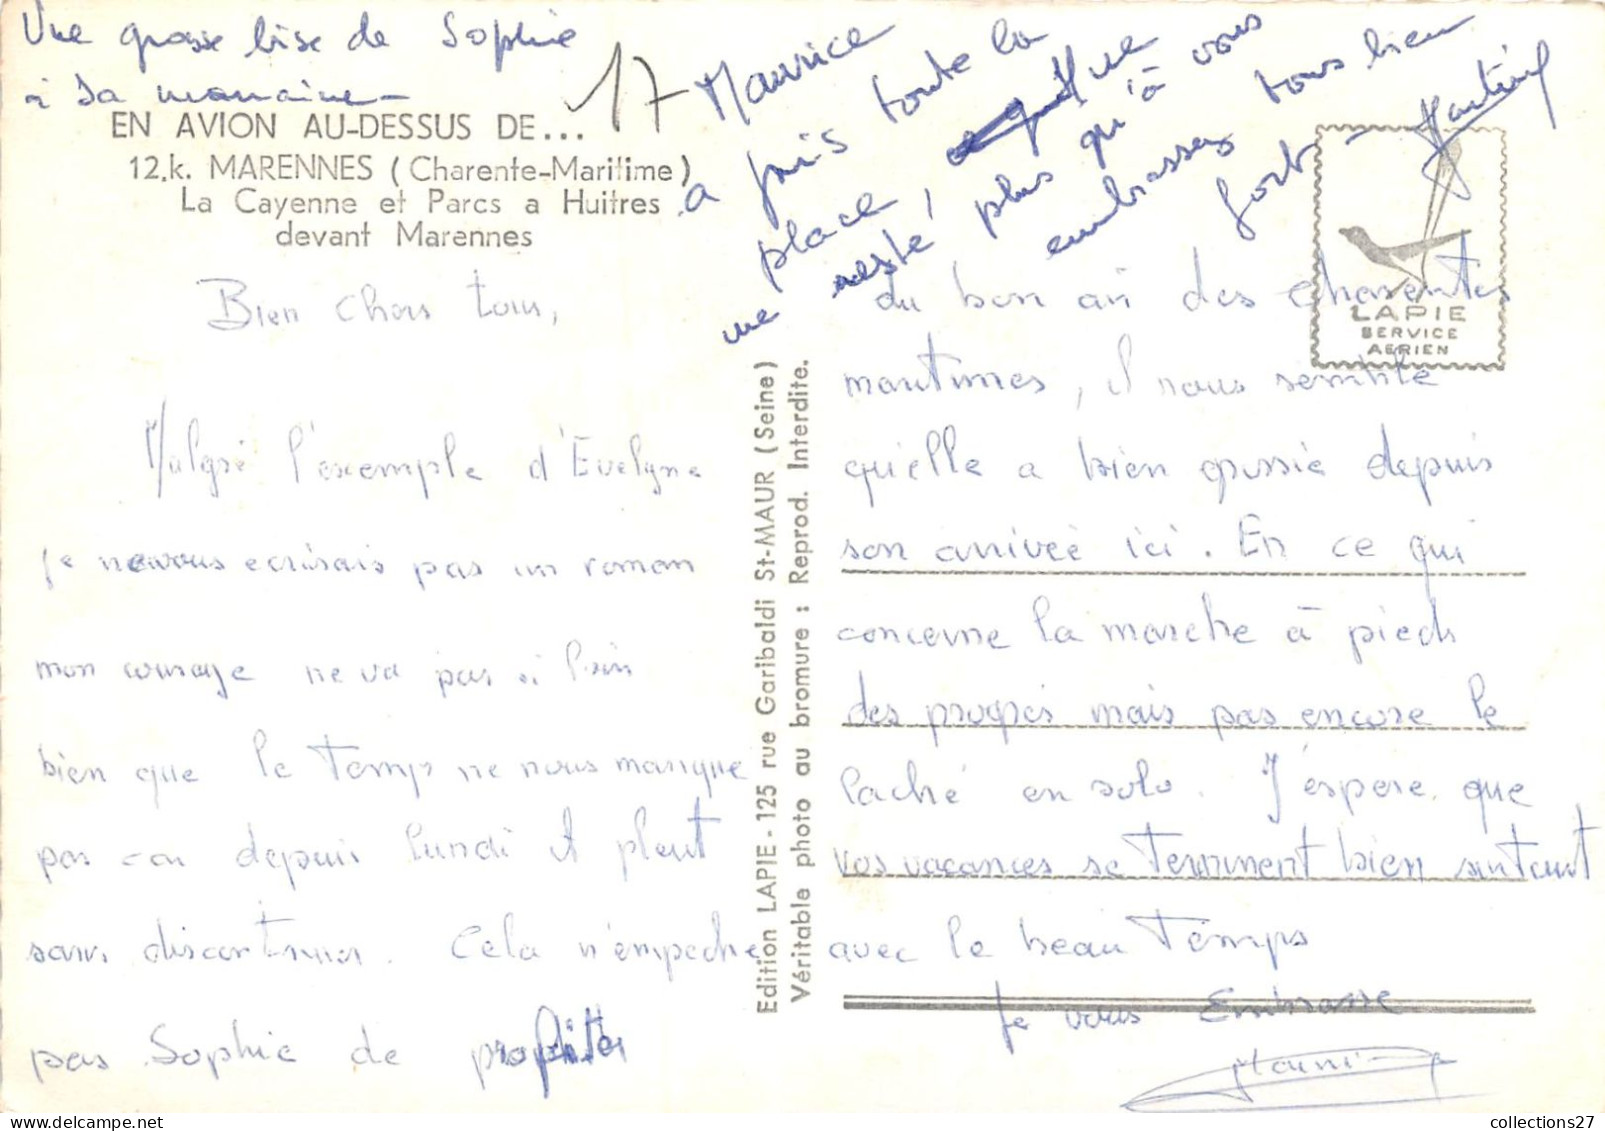 Une grosse bise de Sophie
à sa marraine -
17
EN AVION AU-DESSUS DE...
12.k. MARENNES (Charente-Maritime)
La Cayenne et Parcs a Huitres
devant Marennes
Maurice
a pris toute la
place, que
me reste plus qu'à vous
embrasser tous bien
fort -
LAPIE
SERVICE
AERIEN
Bien chers tous,
Malgré l'exemple d'Evelyne
Je ne vous ecrirais pas un roman
mon courage ne va pas si loin
bien que le temps ne nous manque
pas car depuis lundi il pleut
sans discontinuer. Cela n'empeche
pas Sophie de profiter
Edition LAPIE - 125 rue Garibaldi St-MAUR (Seine)
Véritable photo au bromure : Reprod. Interdite.
du bon air des charentes
maritimes, il nous semble
qu'elle a bien grossie depuis
son arrivée ici. En ce qui
concerne la marche à pied
des progrès mais pas encore le
laché en solo. J'espere que
vos vacances se terminent bien surtout
avec le beau temps
Je vous Embrasse
collections27